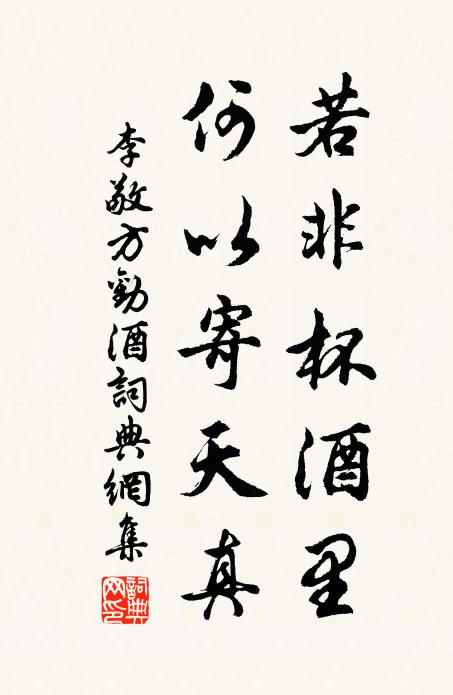 若非杯酒里
何以寄天真
李敬方勸酒詞典網集
詞典網印